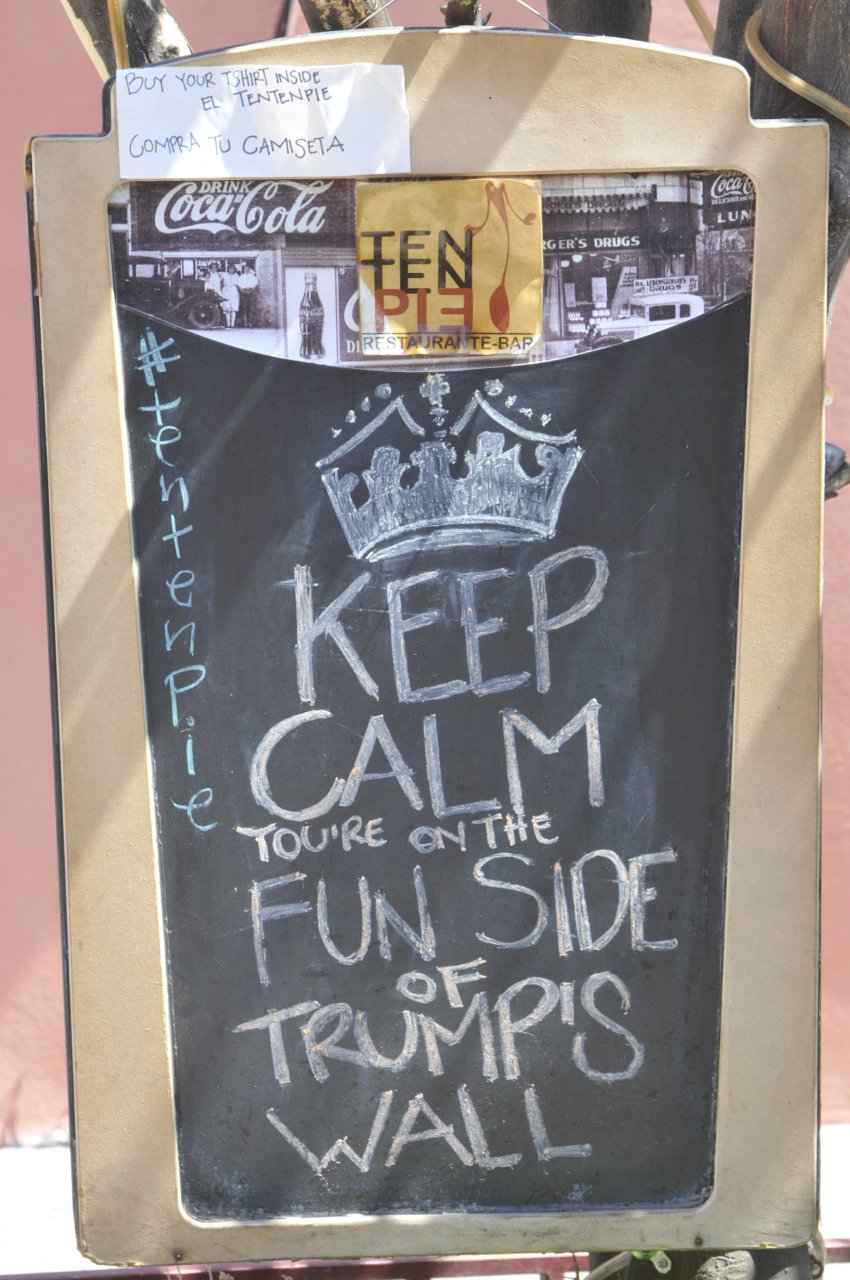 BUY YOUR TSHIRT INSIDE
EL TENTENPIE
COMPRA TU CAMISETA
DRINK
Coca-Cola
TEN
TEN
PIE
RESTAURANTE-BAR
RGER'S DRUGS
DRUGS
Coca-Cola
LUN
#tentenpie
KEEP
CALM
YOU'RE ON THE
FUN SIDE
OF
TRUMP'S
WALL